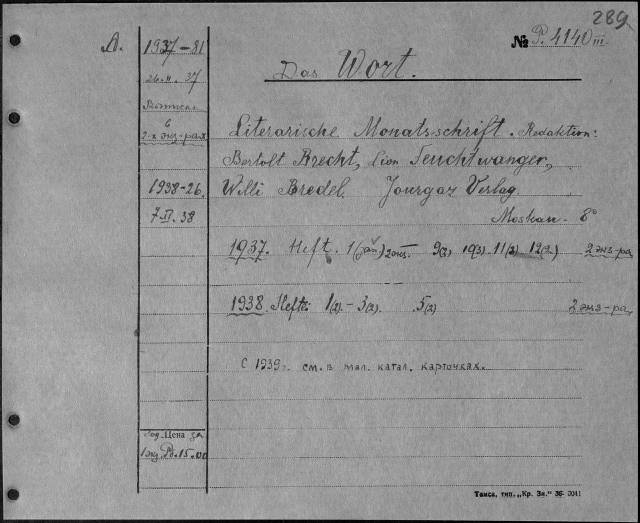 289
A. 1937-81 № P. 4140 III
26.II.37
Das Wort.
Выписан.
в
2-х экз-рах
Literarische Monatsschrift. Redaktion:
Bertolt Brecht, Lion Feuchtwanger,
1938-26. Willi Bredel. Jourgaz Verlag
7.VI.38 Moskau. 8°
1937. Heft. 1 2 экз. 9(2) 10(3) 11(2) 12(2.) 2 экз-ра
1938. Hefte: 1(2) - 3(2). 5(2) 2 экз-ра.
С 1939г. см. в мал. катал. карточках.
Год. Цена за
1 экз. Рб. 15.00
Такса, тип. „Кр. Зн." 36-3041